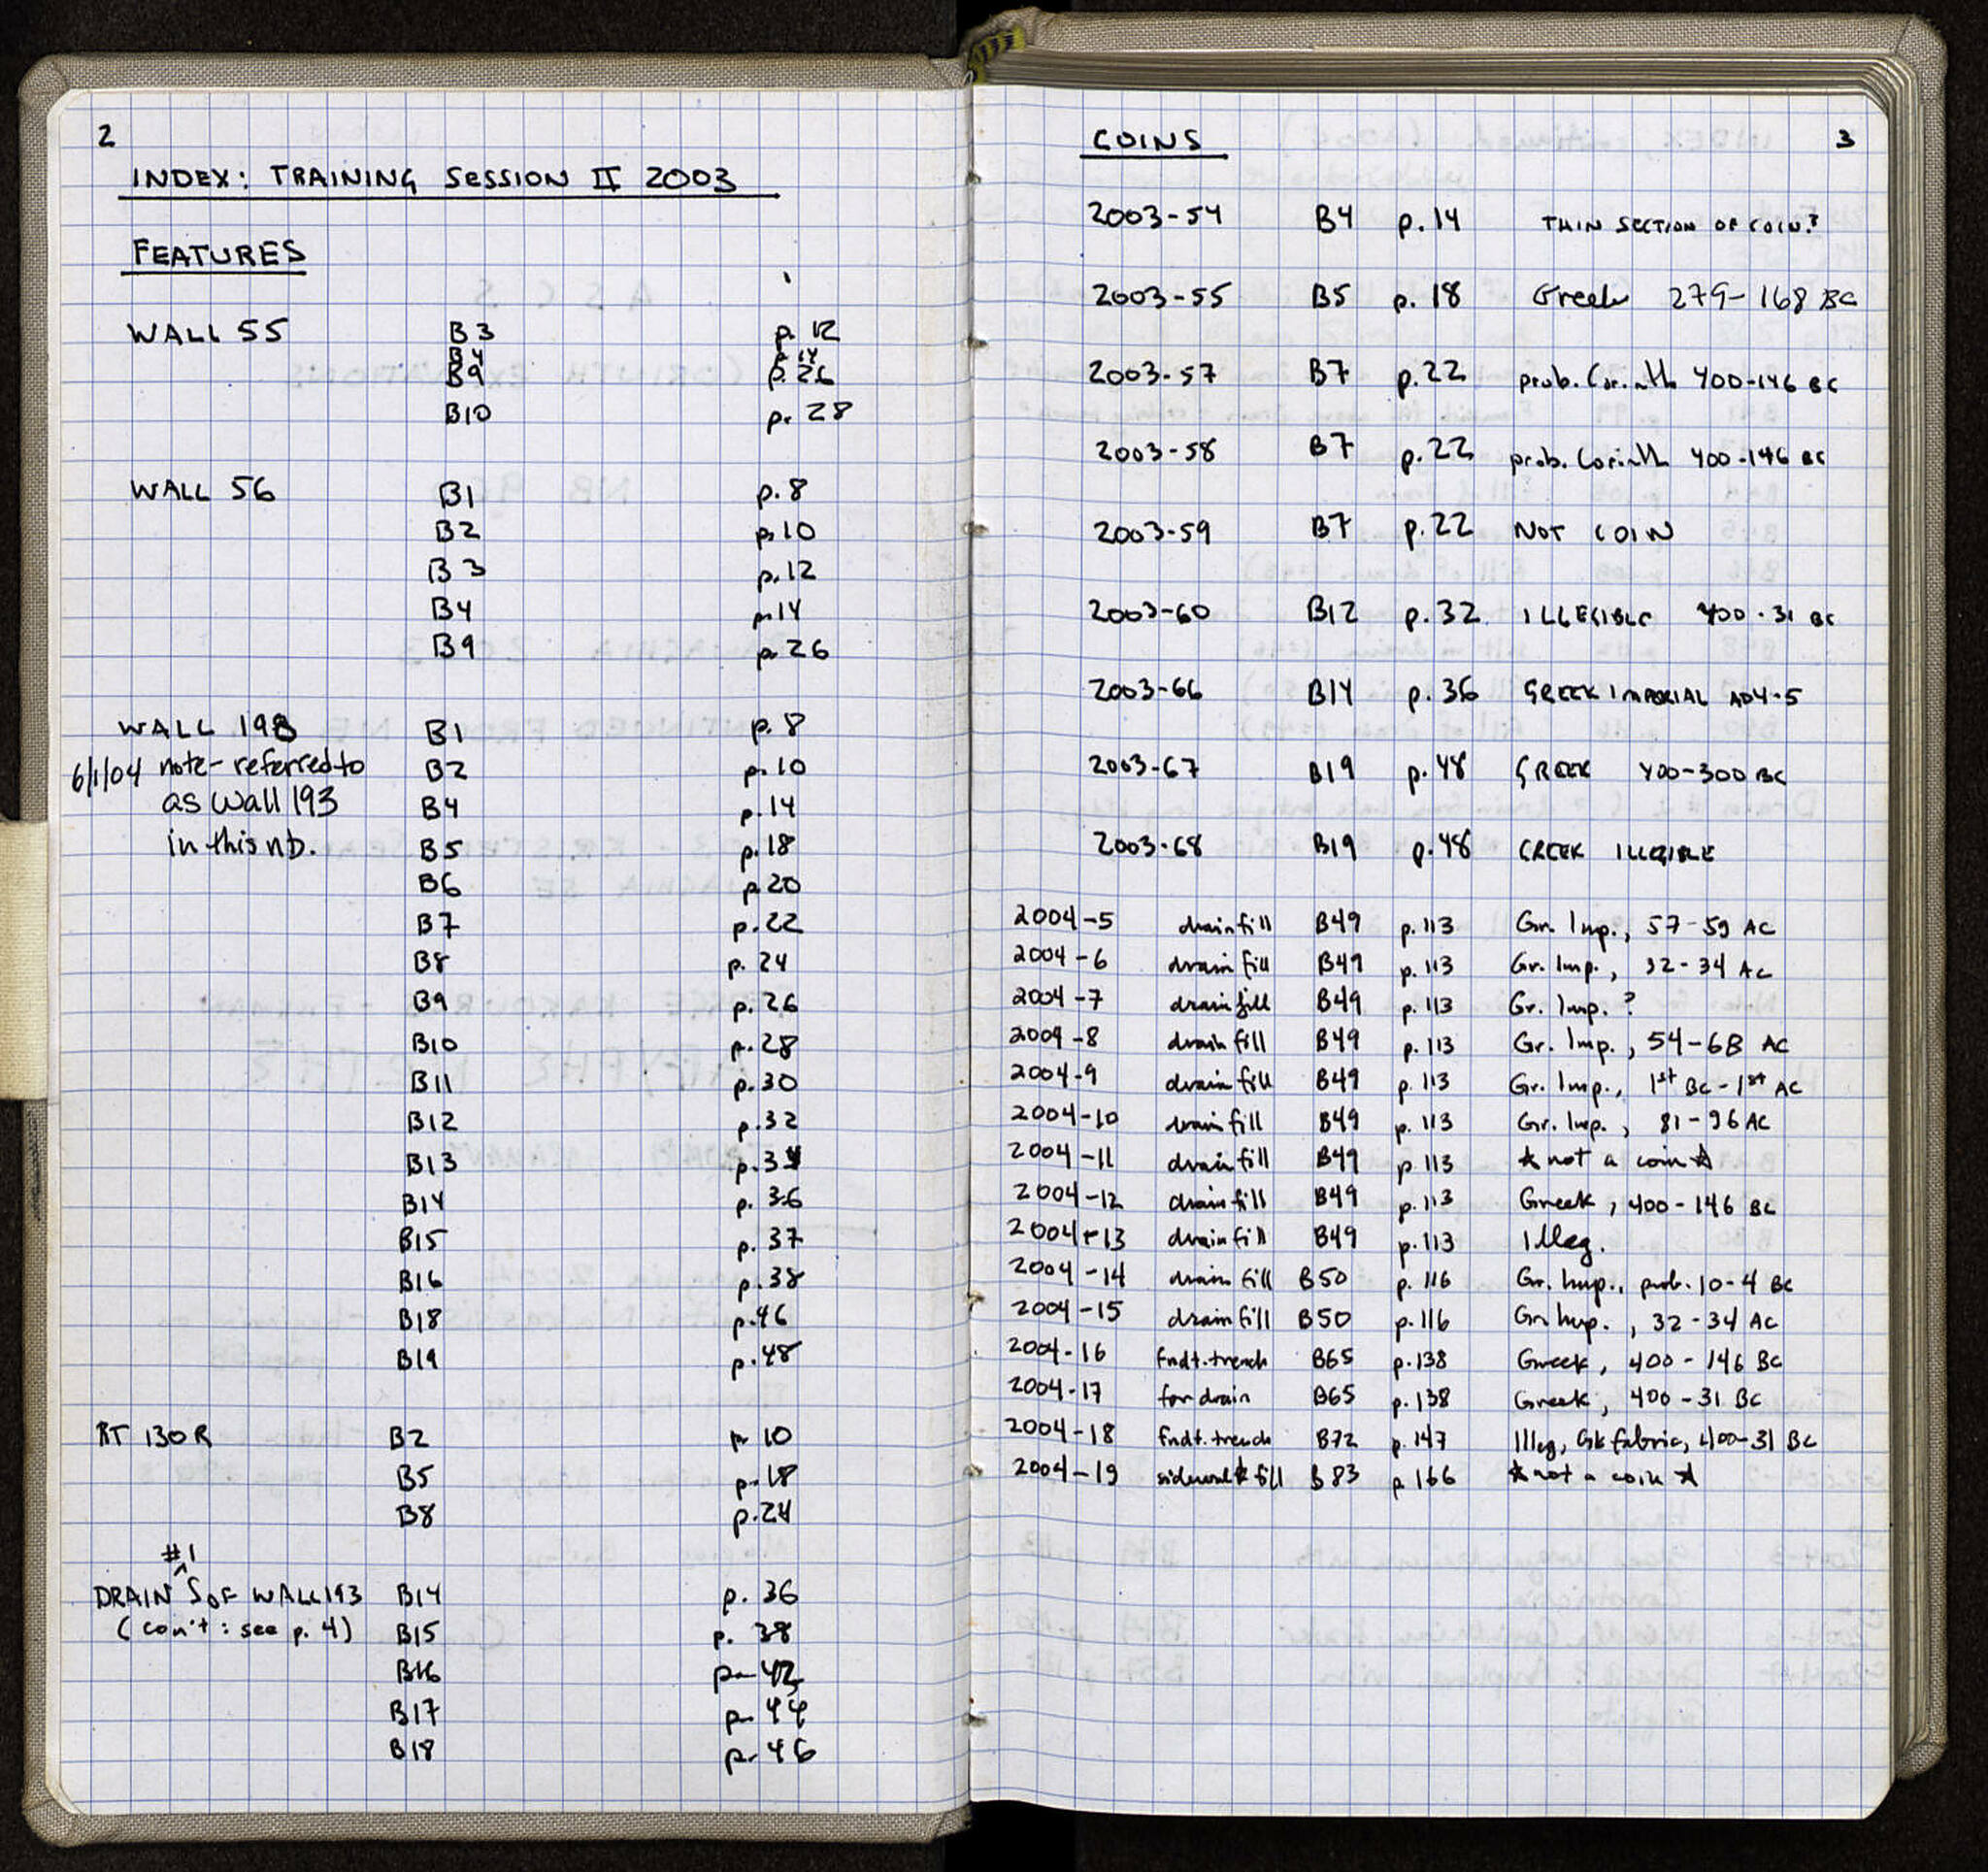 2
INDEX: TRAINING SESSION II 2003
FEATURES
WALL 55 B3 p. 12
B4 p. 14
B9 p. 26
B10 p. 28
WALL 56 B1 p. 8
B2 p. 10
B3 p. 12
B4 p. 14
B9 p. 26
WALL 198 B1 p. 8
6/1/04 note - referred to B2 p. 10
as Wall 193 B4 p. 14
in this nb. B5 p. 18
B6 p. 20
B7 p. 22
B8 p. 24
B9 p. 26
B10 p. 28
B11 p. 30
B12 p. 32
B13 p. 34
B14 p. 36
B15 p. 37
B16 p. 38
B18 p. 46
B19 p. 48
RT 130R B2 p. 10
B5 p. 18
B8 p. 24
#1
DRAIN ^ S OF WALL 193 B14 p. 36
(con't : see p. 4) B15 p. 38
B16 p. 42
B17 p. 44
B18 p. 46
COINS 3
2003-54 B4 p. 14 THIN SECTION OF COIN?
2003-55 B5 p. 18 Greek 279-168 BC
2003-57 B7 p. 22 prob. Corinth 400-146 BC
2003-58 B7 p. 22 prob. Corinth 400-146 BC
2003-59 B7 p. 22 NOT COIN
2003-60 B12 p. 32 ILLEGIBLE 400-31 BC
2003-66 B14 p. 36 GREEK IMPERIAL AD4-5
2003-67 B19 p. 48 GREEK 400-300 BC
2003-68 B19 p. 48 GREEK ILLEGIBLE
2004-5 drain fill B49 p. 113 Gr. Imp., 57-59 AC
2004-6 drain fill B49 p. 113 Gr. Imp., 32-34 AC
2004-7 drain fill B49 p. 113 Gr. Imp. ?
2004-8 drain fill B49 p. 113 Gr. Imp., 54-68 AC
2004-9 drain fill B49 p. 113 Gr. Imp., 1st BC-1st AC
2004-10 drain fill B49 p. 113 Gr. Imp., 81-96 AC
2004-11 drain fill B49 p. 113 ☆ not a coin ☆
2004-12 drain fill B49 p. 113 Greek, 400-146 BC
2004-13 drain fill B49 p. 113 Illeg.
2004-14 drain fill B50 p. 116 Gr. Imp., prob. 10-4 BC
2004-15 drain fill B50 p. 116 Gr. Imp., 32-34 AC
2004-16 fndt. trench B65 p. 138 Greek, 400-146 BC
2004-17 for drain B65 p. 138 Greek, 400-31 BC
2004-18 fndt. trench B72 p. 147 Illeg, Gk fabric, 400-31 BC
2004-19 sidewalk fill B83 p 166 ☆ not a coin ☆